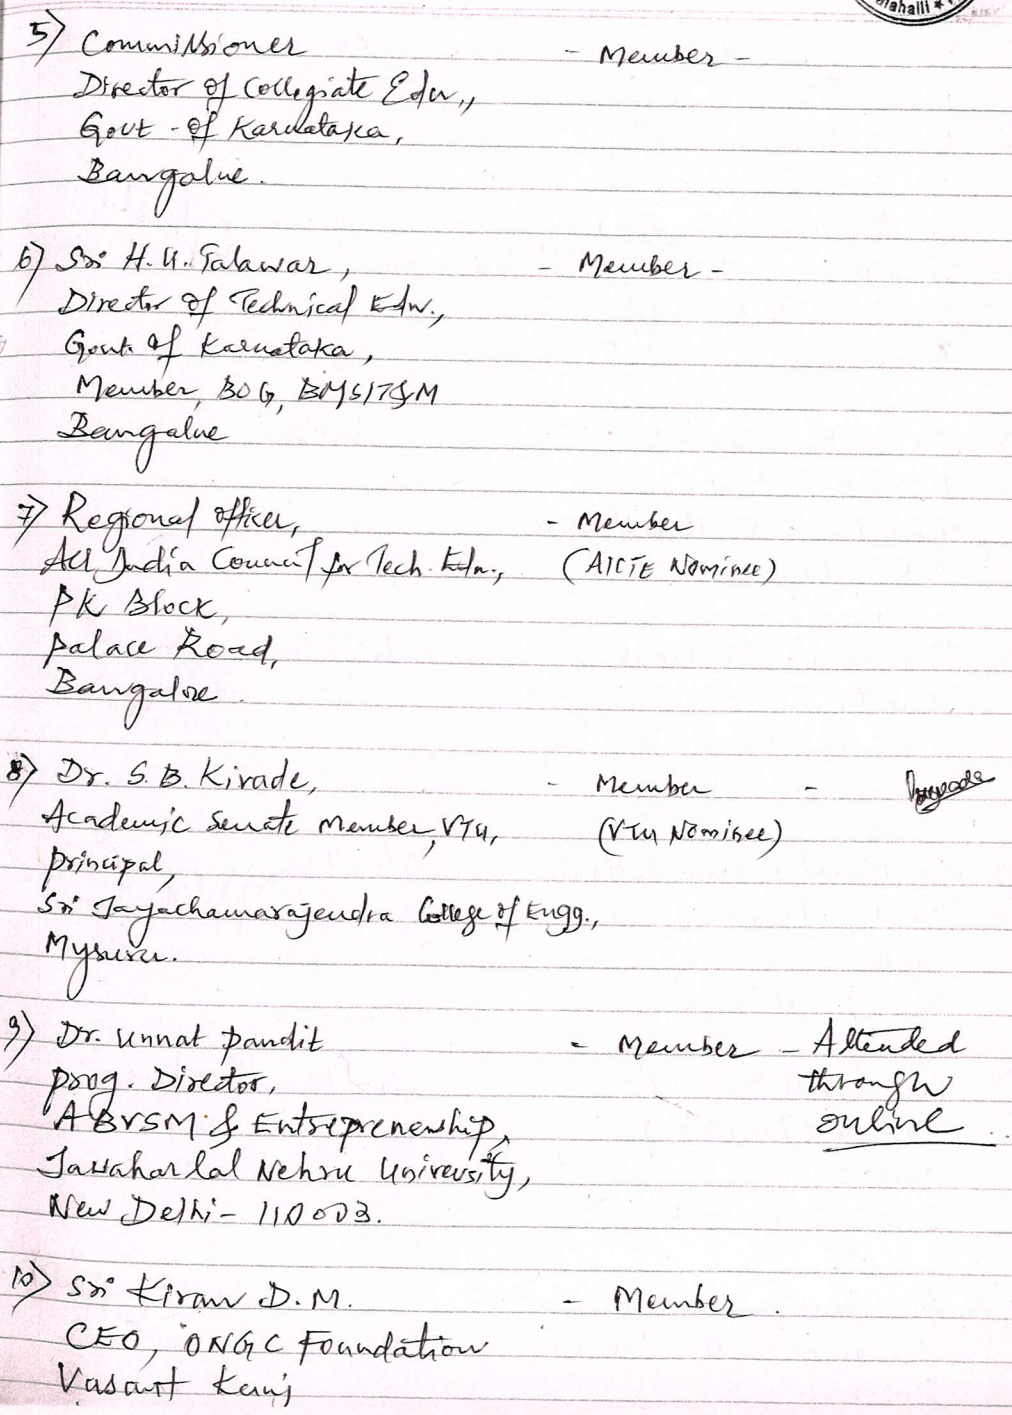 ahalli *
5) Commissioner - Member -
Director of Collegiate Edn.,
Govt - of Karnataka,
Bangalore.
6) Sri H.U. Talawar, - Member -
Director of Technical Edn.,
Govt. of Karnataka,
Member, BOG, BMSIT&M
Bangalore
7) Regional officer, - Member
All India Council for Tech. Edn., (AICTE Nominee)
PK Block,
Palace Road,
Bangalore.
8) Dr. S.B. Kivade, - Member -
Academic Senate Member, VTU, (VTU Nominee)
Principal,
Sri Jayachamarajendra College of Engg.,
Mysuru.
9) Dr. Unnat Pandit - Member - Attended
Prog. Director, through
ABVSM & Entrepreneurship, online
Jawaharlal Nehru University,
New Delhi - 110003.
10) Sri Kiran D.M. - Member.
CEO, ONGC Foundation
Vasant Kunj